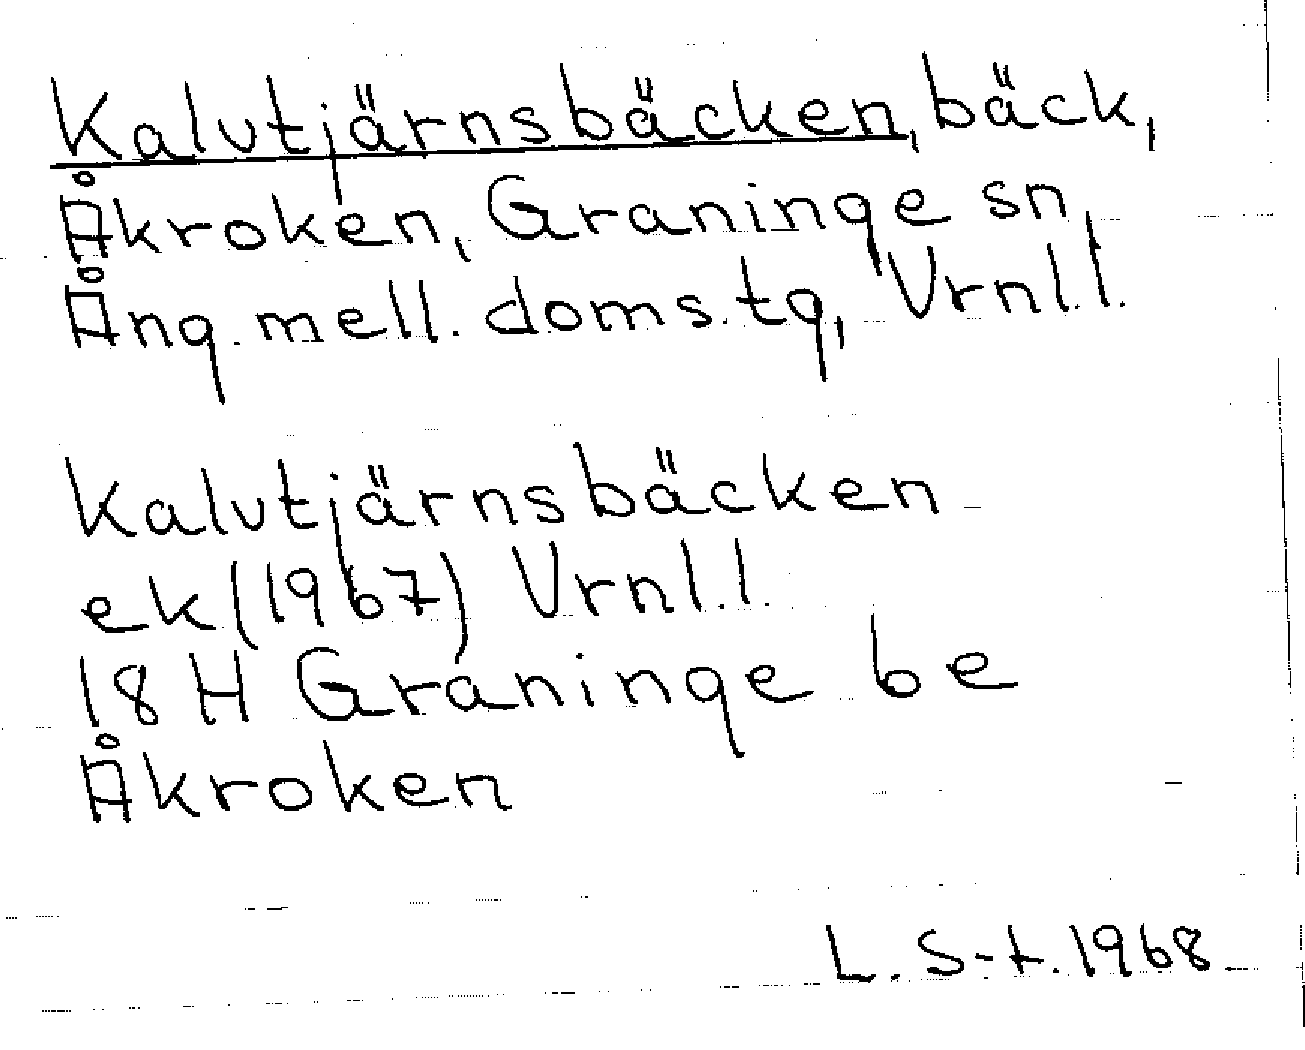 Kalvtjärnsbäcken, bäck,
Åkroken, Graninge sn,
Ång. mell. doms. tg, Vrnl.l.
Kalvtjärnsbäcken
ek (1967) Vrnl.l.
18H Graninge be
Åkroken
L. S-t. 1968